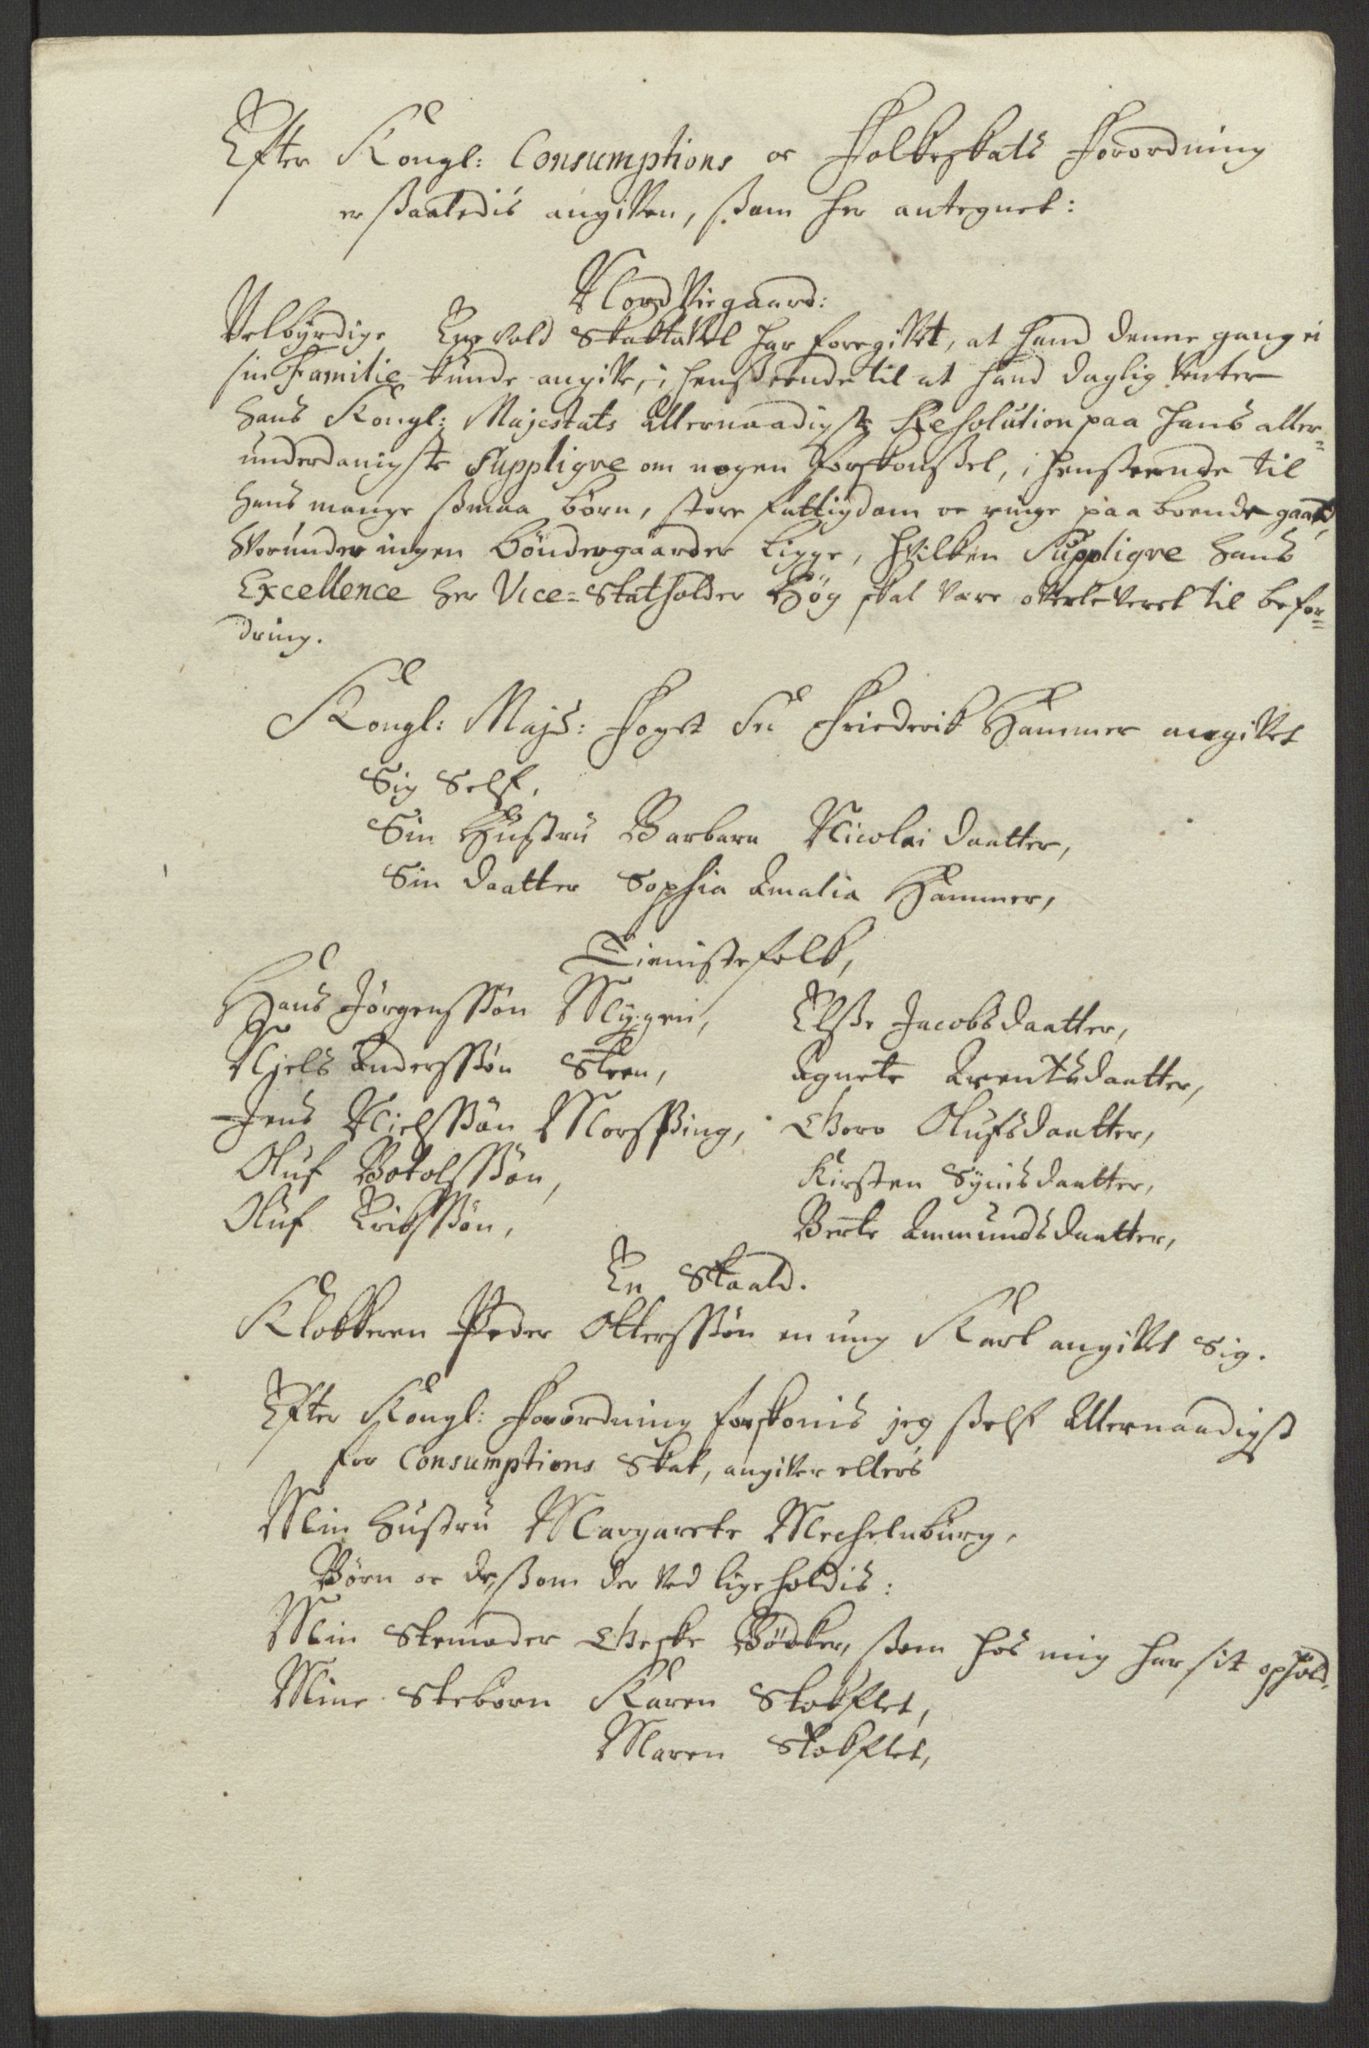 Efter Kongl: Consumptions oc Folkeskats Forordning
er ßaaledis angiven, ßom her antegnet:
Nord Viegaard:
Velbyrdige Enevold Skaktavel har foregivet, at hand denne gang ei
sin Familie kunde angive, i henßeende til at hand daglig venter
Hans Kongl: Majestats Allernaadigste Resolution paa hans aller-
underdanigste Suppliqve om nogen Forskonßel, i henßeende til
hans mange ßmaa børn, store fattigdom oc ringe paa boende gaard,
Hvorunder ingen bøndergaarder ligge, Hvilken Suppliqve hans
Excellence Her Vice-Statholder Høg skal være overleveret til befor-
dring.
Kongl: Majs: Foget Sr Friederik Hammer angivet
Sig Self,
Sin Hustru Barbara Nicolai daatter,
Sin daatter Sophia Amalia Hammer,
Tieniste folk,
Hans Jørgenssøn Myggen, Elße Jacobsdaatter,
Niels Anderssøn Steen, Agnete Arentsdaatter,
Jens Nielssøn Morssing, Goro Olufsdaatter,
Oluf Botolfssøn, Kirsten Synisdaatter,
Oluf Erikssøn, Berte Amundsdaatter,
En Staald.
Klokkeren Peder Otterssøn en ung Karl angivet Sig.
Efter Kongl: Forordning forskonis jeg ßelf Allernaadigst
for Consumptions Skat, angiver ellers
Min Hustru Margarete Mechelnburg,
Børn oc deßom der ved lige holdis:
Min Stemoder Geske Bødker, ßom hos mig har sit ophold,
Mine Stebørn Karen Stokflet,
Maren Stokflet,